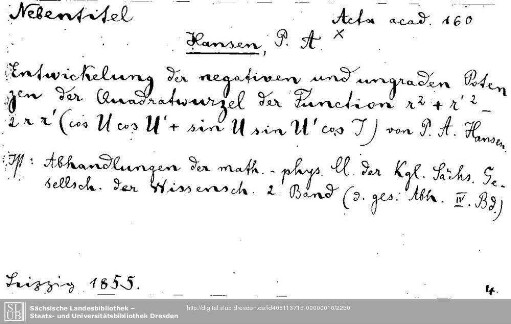 Nebentitel
Acta acad. 160
x
Hansen, P. A.
Entwickelung der negativen und ungraden Poten
zen der Quadratwurzel der Function r² + r'² –
2 r r' (cos U cos U' + sin U sin U' cos J) von P. A. Hansen.
In: Abhandlungen der math. - phys. Cl. der Kgl. Sächs. Ge-
sellsch. der Wissensch. 2. Band (d. ges. Abh. IV. Bd.)
Leipzig 1855.
4.
SLUB
Sächsische Landesbibliothek –
Staats- und Universitätsbibliothek Dresden